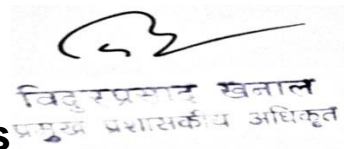 विदुरप्रसाद खनाल
s प्रमुख प्रशासकीय अधिकृत